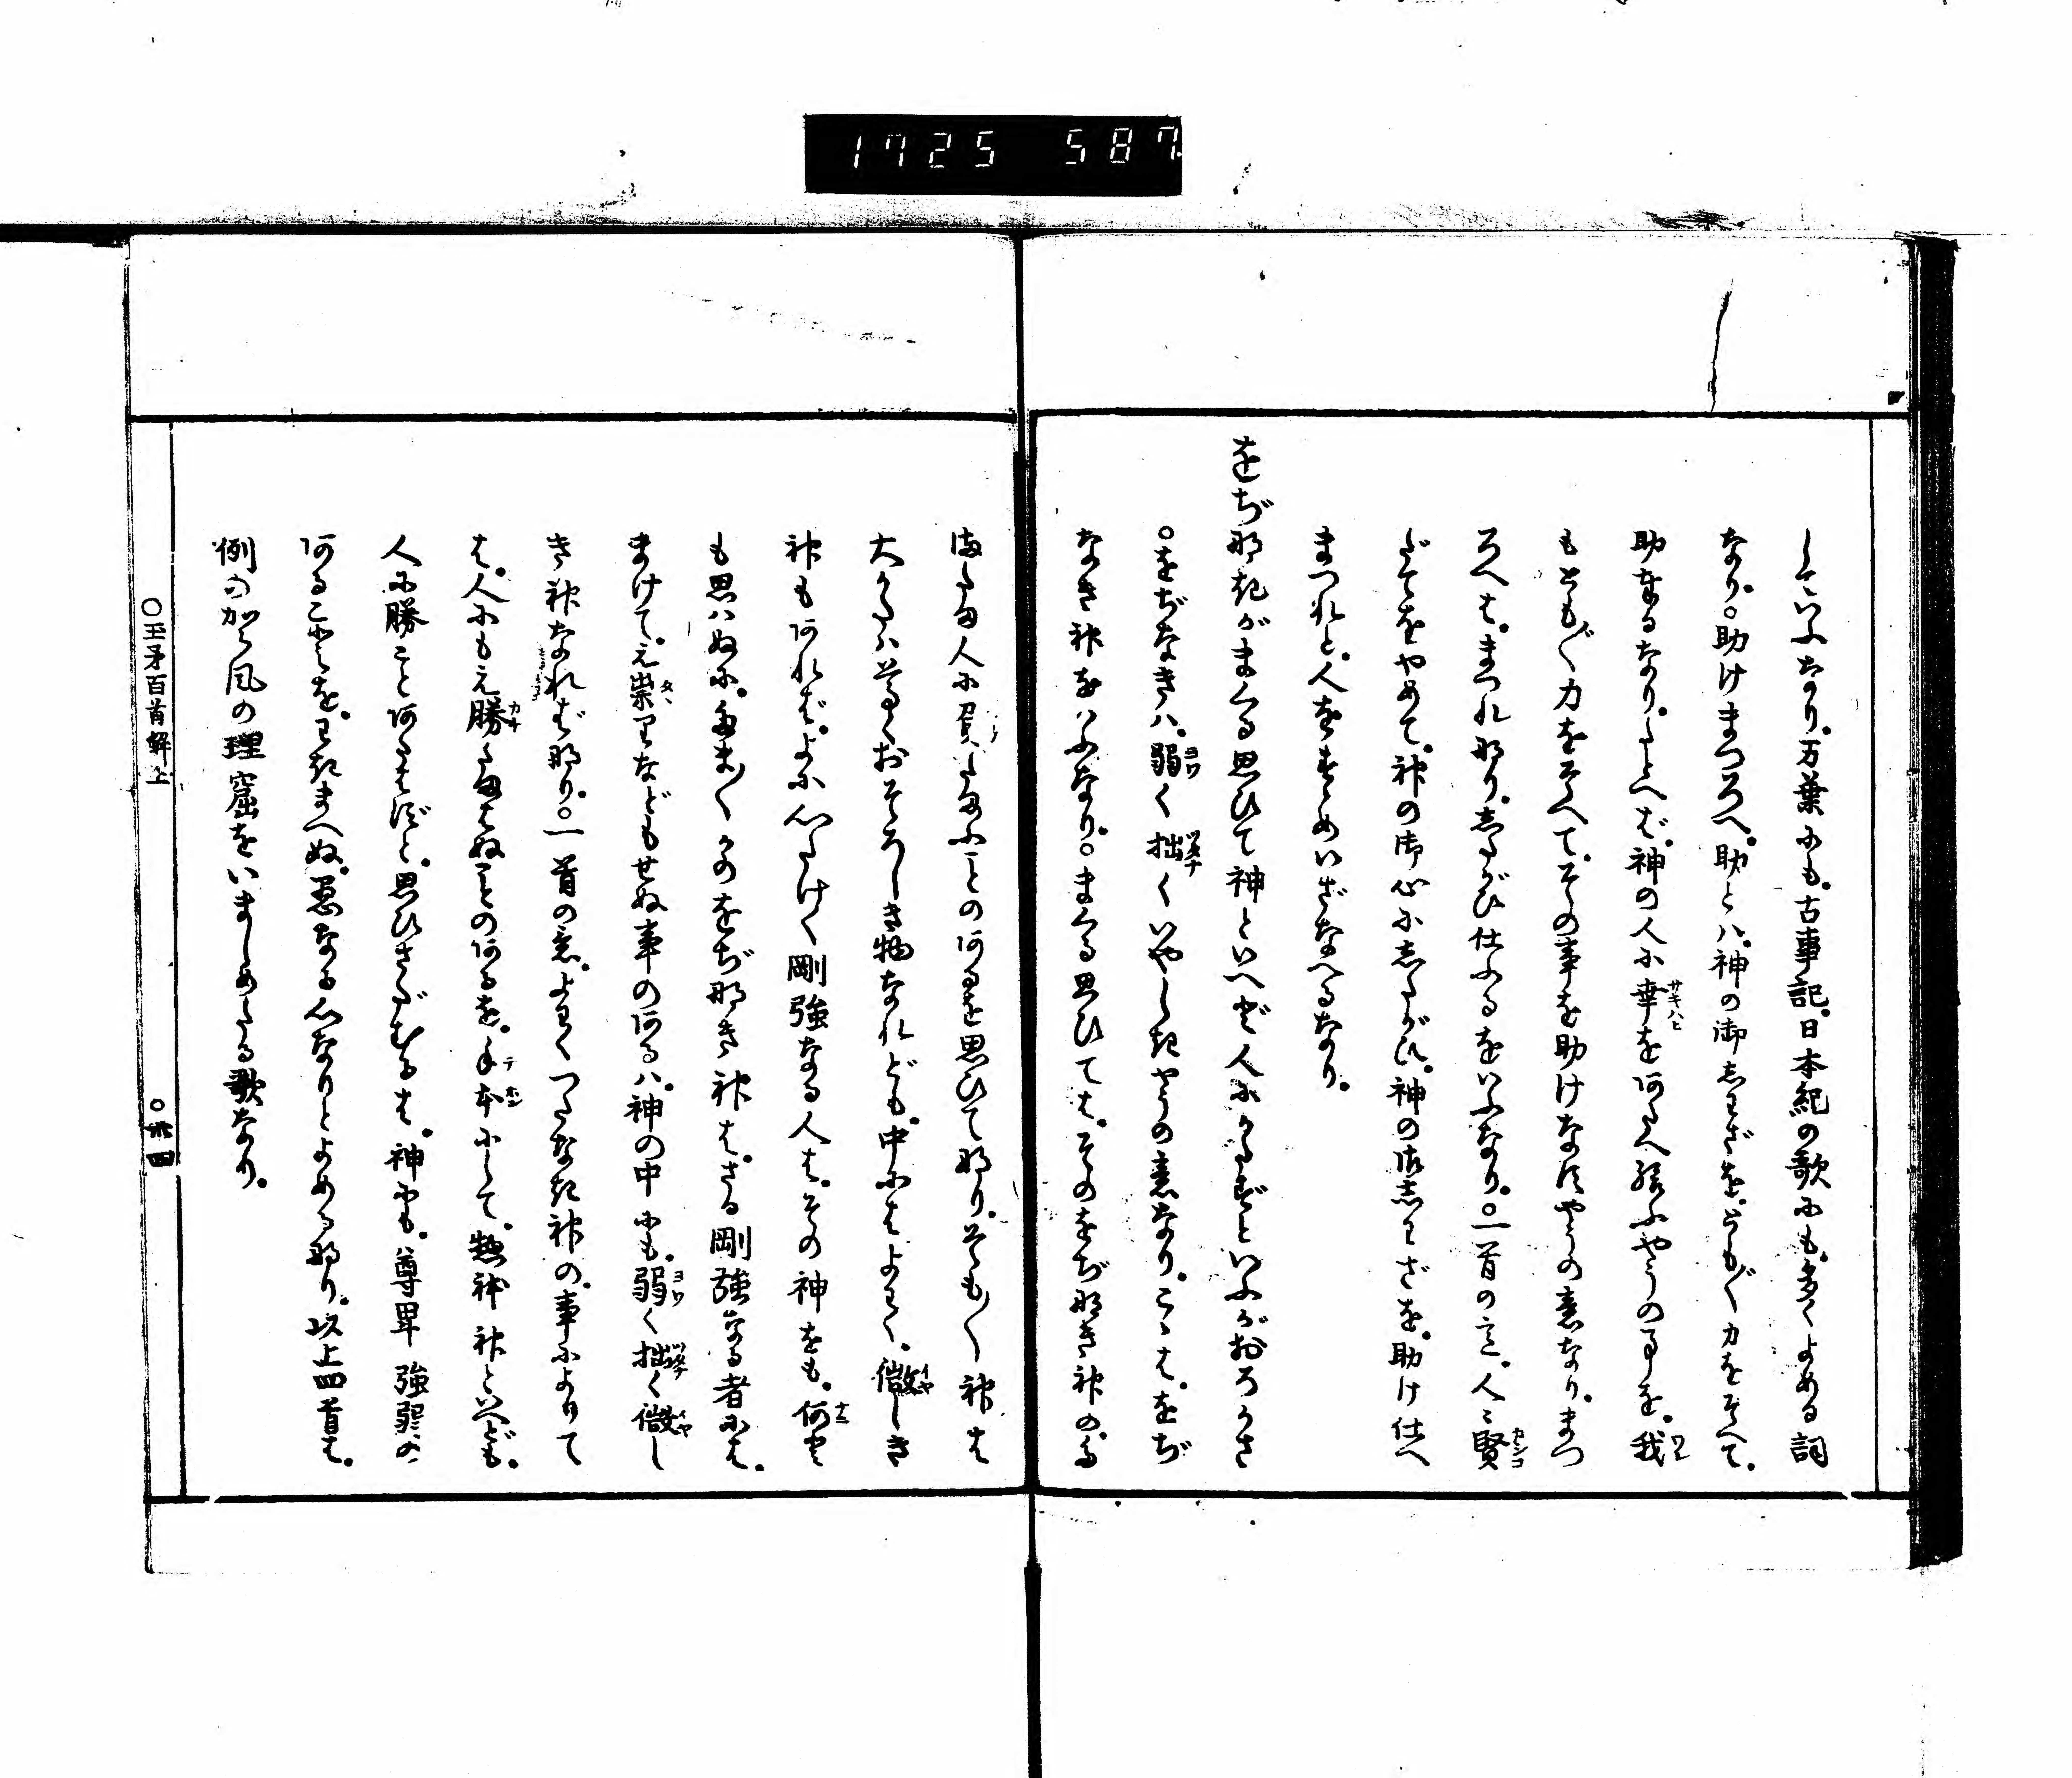 1725 587
していふなり。万葉にも。古事記。日本紀の歌にも。多くよめる詞
なり。○助けまつろへ。助とハ。神の御しわざを。とも〴〵力をそへて。
助奉るなり。たとへバ。神の人に幸を何たへ給ふやうの事を。我
もとも〴〵力をそへて。その事を助けなすやうの意なり。まつ
ろへは。まつれ那り。したがひ仕ふるをいふなり。○一首の意。人ミ賢
だてをやめて。神の御心にしたがひ。神の御しわざを。助け仕へ
まつれと。人をすゝめいざなへるなり。
をぢ那きがまくる思ひて神といへど人にかたずといふがおろかさ
○をぢなきハ。弱く拙くいやしきやうの意なり。こゝは。をぢ
なき神をいふなり。○まくる思ひては。そのをぢ那き神の。
またま人に負たまふことの何るを思ひて那り。そも〳〵神は
大かたハ尊くおそろしき物なれども。中にはよわく。微しき
神も何れバ。よに心たけく剛強なる人は。その神をも。何と
も思ハぬに。たま〳〵かのをぢ那き神は。さる剛強なる者には。
まけて。え崇りなどもせぬ事の何るハ。神の中にも。弱く拙く微し
き神なれバ那り。○一首の意。よわくつたなき神の。事によりて
は。人にもえ勝たまはぬことの何るを。手本にして。惣体神といへども。
人に勝こと何たはずと。思ひさだむるは。神にも。尊卑強弱の
何ることを。わきまへぬ。愚なる心なりとよめる那り。以上四首は。
例の加ら風の理窟をいましめたる歌なり。
○玉矛百首解上 ○廿四